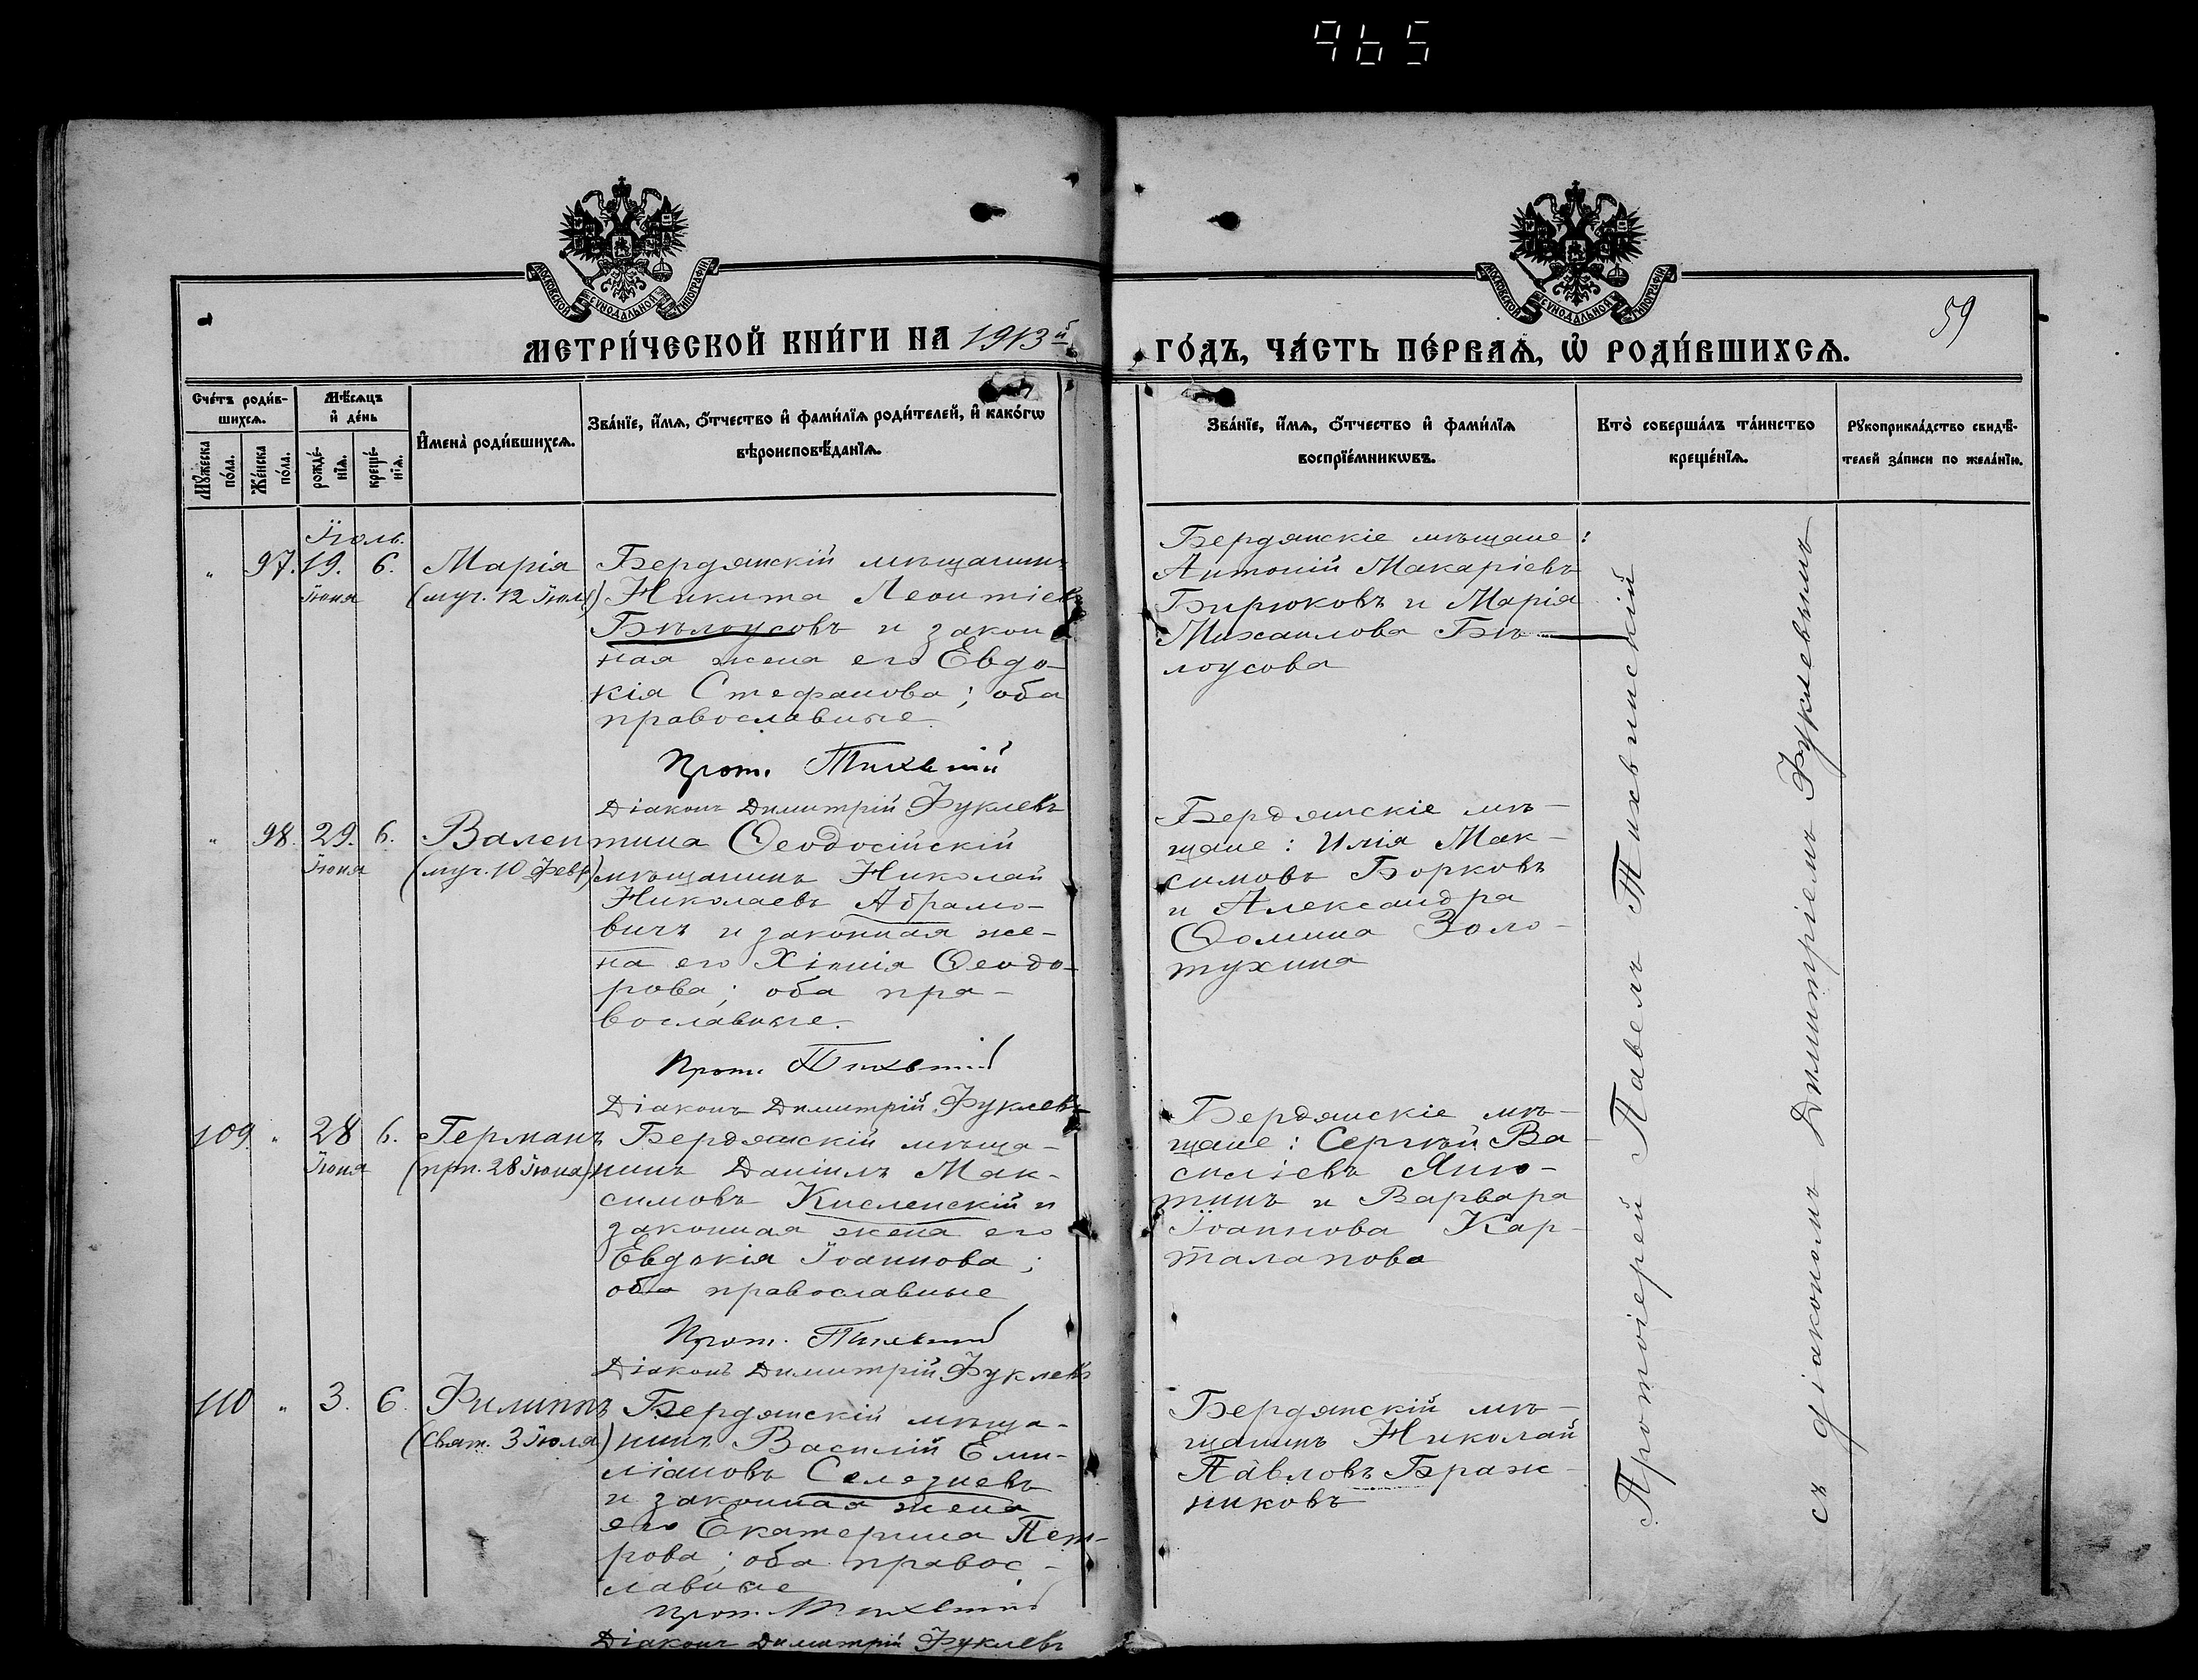 965
МОСКОВСКОЙ СѴНОДАЛЬНОЙ ТИПОГРАФІИ.
МОСКОВСКОЙ СѴНОДАЛЬНОЙ ТИПОГРАФІИ.
59
МЕТРИ́ЧЕСКОЙ КНИ́ГИ НА 1913й
ГО́ДЪ, ЧА́СТЬ ПЕ́РВАѦ, Ѡ РОДИ́ВШИХСѦ.
Сче́тъ роди́в-
шихсѧ.
Мꙋ́жеска
по́ла.
Же́нска
по́ла.
Мѣ́сѧцъ
и҆ де́нь
рожде́-
нїѧ.
креще́-
нїѧ.
И҆мена̀ роди́вшихсѧ.
Зва́нїе, и҆́мѧ, ѻ҆́тчество и҆ фами́лїѧ роди́телей, и҆ како́гѡ
вѣроисповѣ́данїѧ.
Зва́нїе, и҆́мѧ, ѻ҆́тчество и҆ фами́лїѧ
воспрїе́мникѡвъ.
Кто̀ соверша́лъ та́инство
креще́нїѧ.
Рꙋкоприкла́дство свидѣ́-
телей за́писи по жела́нїю.
Іюль.
" 97. 19. 6. Марія
Іюня (муч. 12 Іюля)
Бердянскій мѣщанинъ
Никита Леонтіевъ
Бѣлоусовъ и закон
ная жена его Евдо-
кія Стефанова; оба
православные.
Прот. Тихвинскій
Діаконъ Димитрій Фуклевъ
Бердянскіе мѣщане:
Антоній Макаріевъ
Бирюковъ и Марія
Михаилова Бѣ-
лоусова
" 98. 29. 6. Валентина
Іюня (муч. 10 Февр)
Ѳеодосійскій
мѣщанинъ Николай
Николаевъ Абрамо-
вичъ и законная же-
на его Хіонія Ѳеодо-
рова; оба пра-
вославные.
Прот. Тихвинскій
Діаконъ Димитрій Фуклевъ
Бердянскіе мѣ-
щане: Илія Мак-
симовъ Борковъ
и Александра
Ѳомина Золо-
тухина
109. " 28 6. Германъ
Іюня (прп. 28 Іюня)
Бердянскій мѣща-
нинъ Даніилъ Мак-
симовъ Кисленскій и
законная жена его
Евдокія Іоаннова;
оба православные
Прот. Тихвинскій
Діаконъ Димитрій Фуклевъ
Бердянскіе мѣ-
щане: Сергѣй Ва-
силіевъ Аню-
тинъ и Варвара
Іоаннова Кар-
таланова
110 " 3. 6. Филиппъ
(свят. 3 Іюля)
Бердянскій мѣща-
нинъ Василій Еми-
ліановъ Селезневъ
и законная жена
его Екатерина Пет-
рова; оба правос-
лавные
Прот. Тихвинскій
Діаконъ Димитрій Фуклевъ
Бердянскій мѣ-
щанинъ Николай
Павловъ Браж-
никовъ
Протоіерей Павелъ Тихвинскій
съ діакономъ Димитріемъ Фуклевымъ